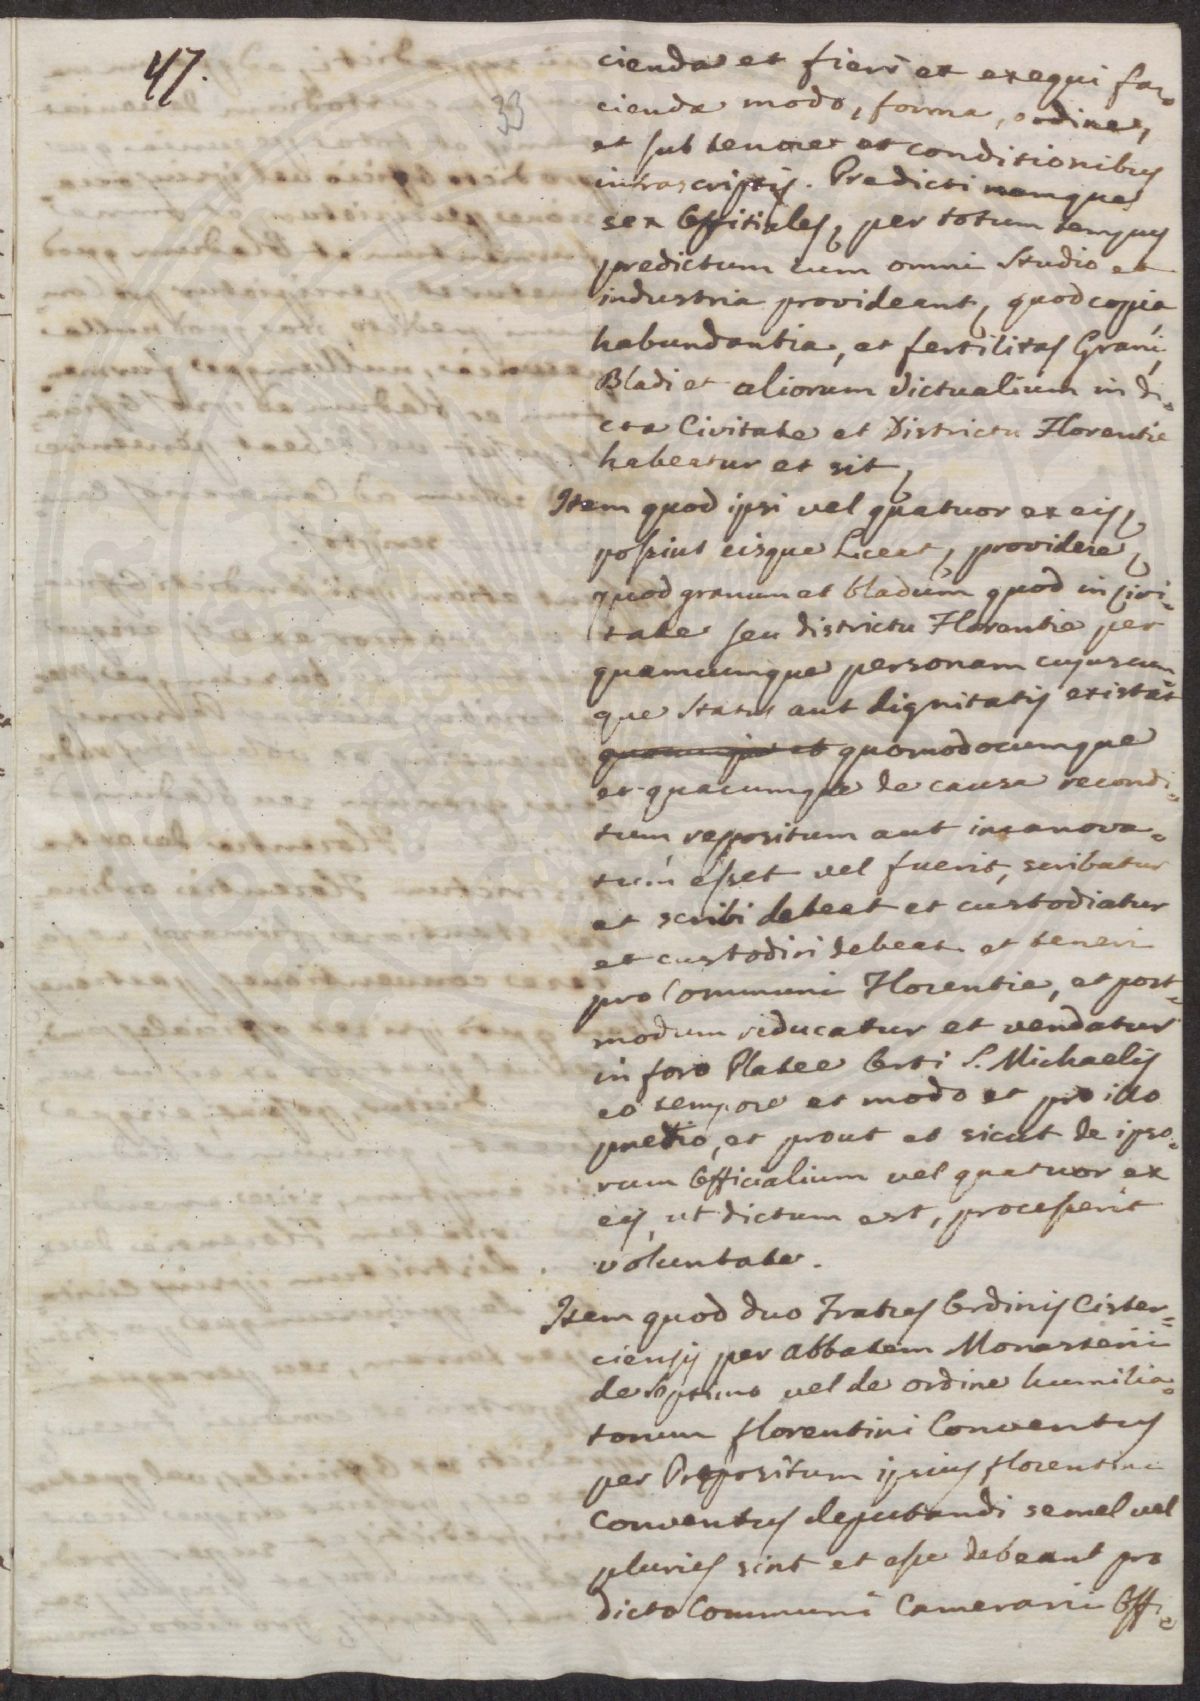 47.
33
cienda et fieri et exequi fa=
cienda modo, forma, ordine,
et sub tenore et conditionibus
infrascriptis. Predicti namque
sex Offitiales, per totum tempus
predictum cum omni studio et
industria provideant, quod copia
habundantia, et fertilitas Grani,
Bladi et aliorum victualium in di=
cta Civitate et Districtu Florentie
habeatur et sit,
Item quod ipsi vel quatuor ex eis,
possint eisque Liceat, providere,
quod granum et bladum quod in Civi=
tate seu districtu Florentie per
quamcumque personam cujuscum
que status aut dignitatis existat
quomodocumque
et quacumque de causa recondi=
tum repositum aut incanova=
tum esset vel fuerit, scribatur
et scribi debeat et custodiatur
et custodiri debeat et teneri
pro Communi Florentie, et post=
modum reducatur et vendatur
in foro Platee Orti S. Michaelis
eo tempore et modo et pro illo
pretio, et prout et sicut de ipso=
rum Officialium vel quatuor ex
eis, ut dictum est, processerit
voluntate.
Item quod duo Fratres Ordinis Cister=
ciensis per Abbatem Monasterii
de Septimo vel de ordine humilia=
torum florentini Conventus
per Prepositum ipsius florentini
Conventus deputandi semel vel
pluries sint et esse debeant pro
dicto Communi Camerarii Offi=